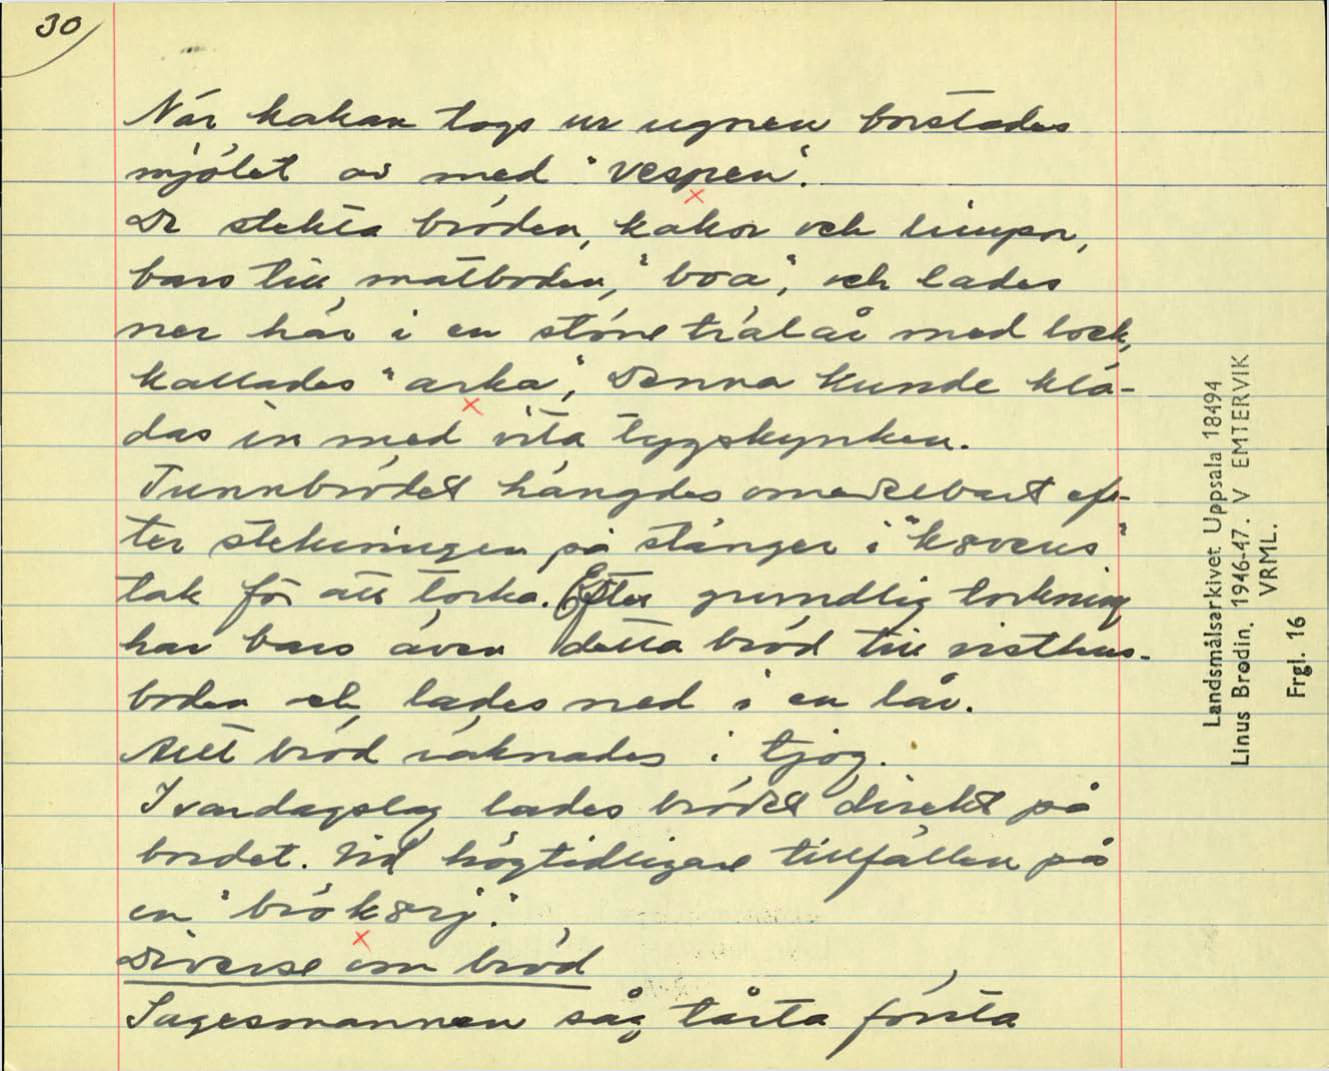 30
När kakan togs ur ugnen borstades
mjölet av med "vespen".
De stekta bröden, kakor och limpor,
bars till matboden, "boa", och lades
ner här i en större trälår med lock,
kallades "arka", Denna kunde klä-
das in med vita tygskynken.
Tunnbrödet hängdes omedelbart ef-
ter stekningen på stänger i "k8vens"
tak för att torka. Efter grundlig torkning
har bars även detta bröd till visthus-
boden och lades ned i en lår.
Allt bröd räknades i tjog.
I vardagslag lades brödet direkt på
bordet. Vid högtidligare tillfällen på
en "brök8rj".
Diverse om bröd
Sagesmannen såg tårta första
Landsmålsarkivet Uppsala 18494
Linus Brodin. 1946-47. V EMTERVIK
VRML.
Frgl. 16